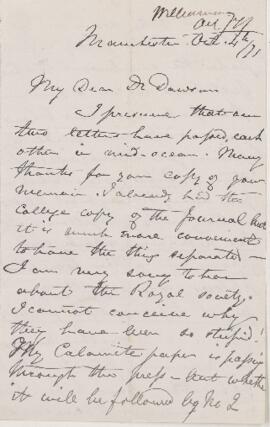 Williamson
Oct 4/71
Manchester Oct. 4th
/71
My Dear Dr Dawson
I presume that our
two letters have passed each
other in mid-ocean. Many
thanks for your copy of your
memoir. I already had the
College copy of the Journal but
it is much more convenient
to have the thing separate —
I am very sorry to hear
about the Royal Society.
I cannot conceive why
they have been so stupid!
My Calamite paper is passing
through the press — but whether
it will be followed by No 2